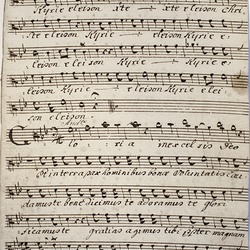 Kyrie eleison xte — xte eleison Chri.
ste eleison Kyrie — eleison Kyrie e.
leison eleison Kyrie — xte — xte eleison
eleison Kyrie — eleison Kyrie elei
son eleison.
loria in excelsis Deo
Et in terra pax hominibus bonæ voluntatis Lau
damus te benedicimus te adoramus te glori
ficamus te gratias agimus tibi propter magnam